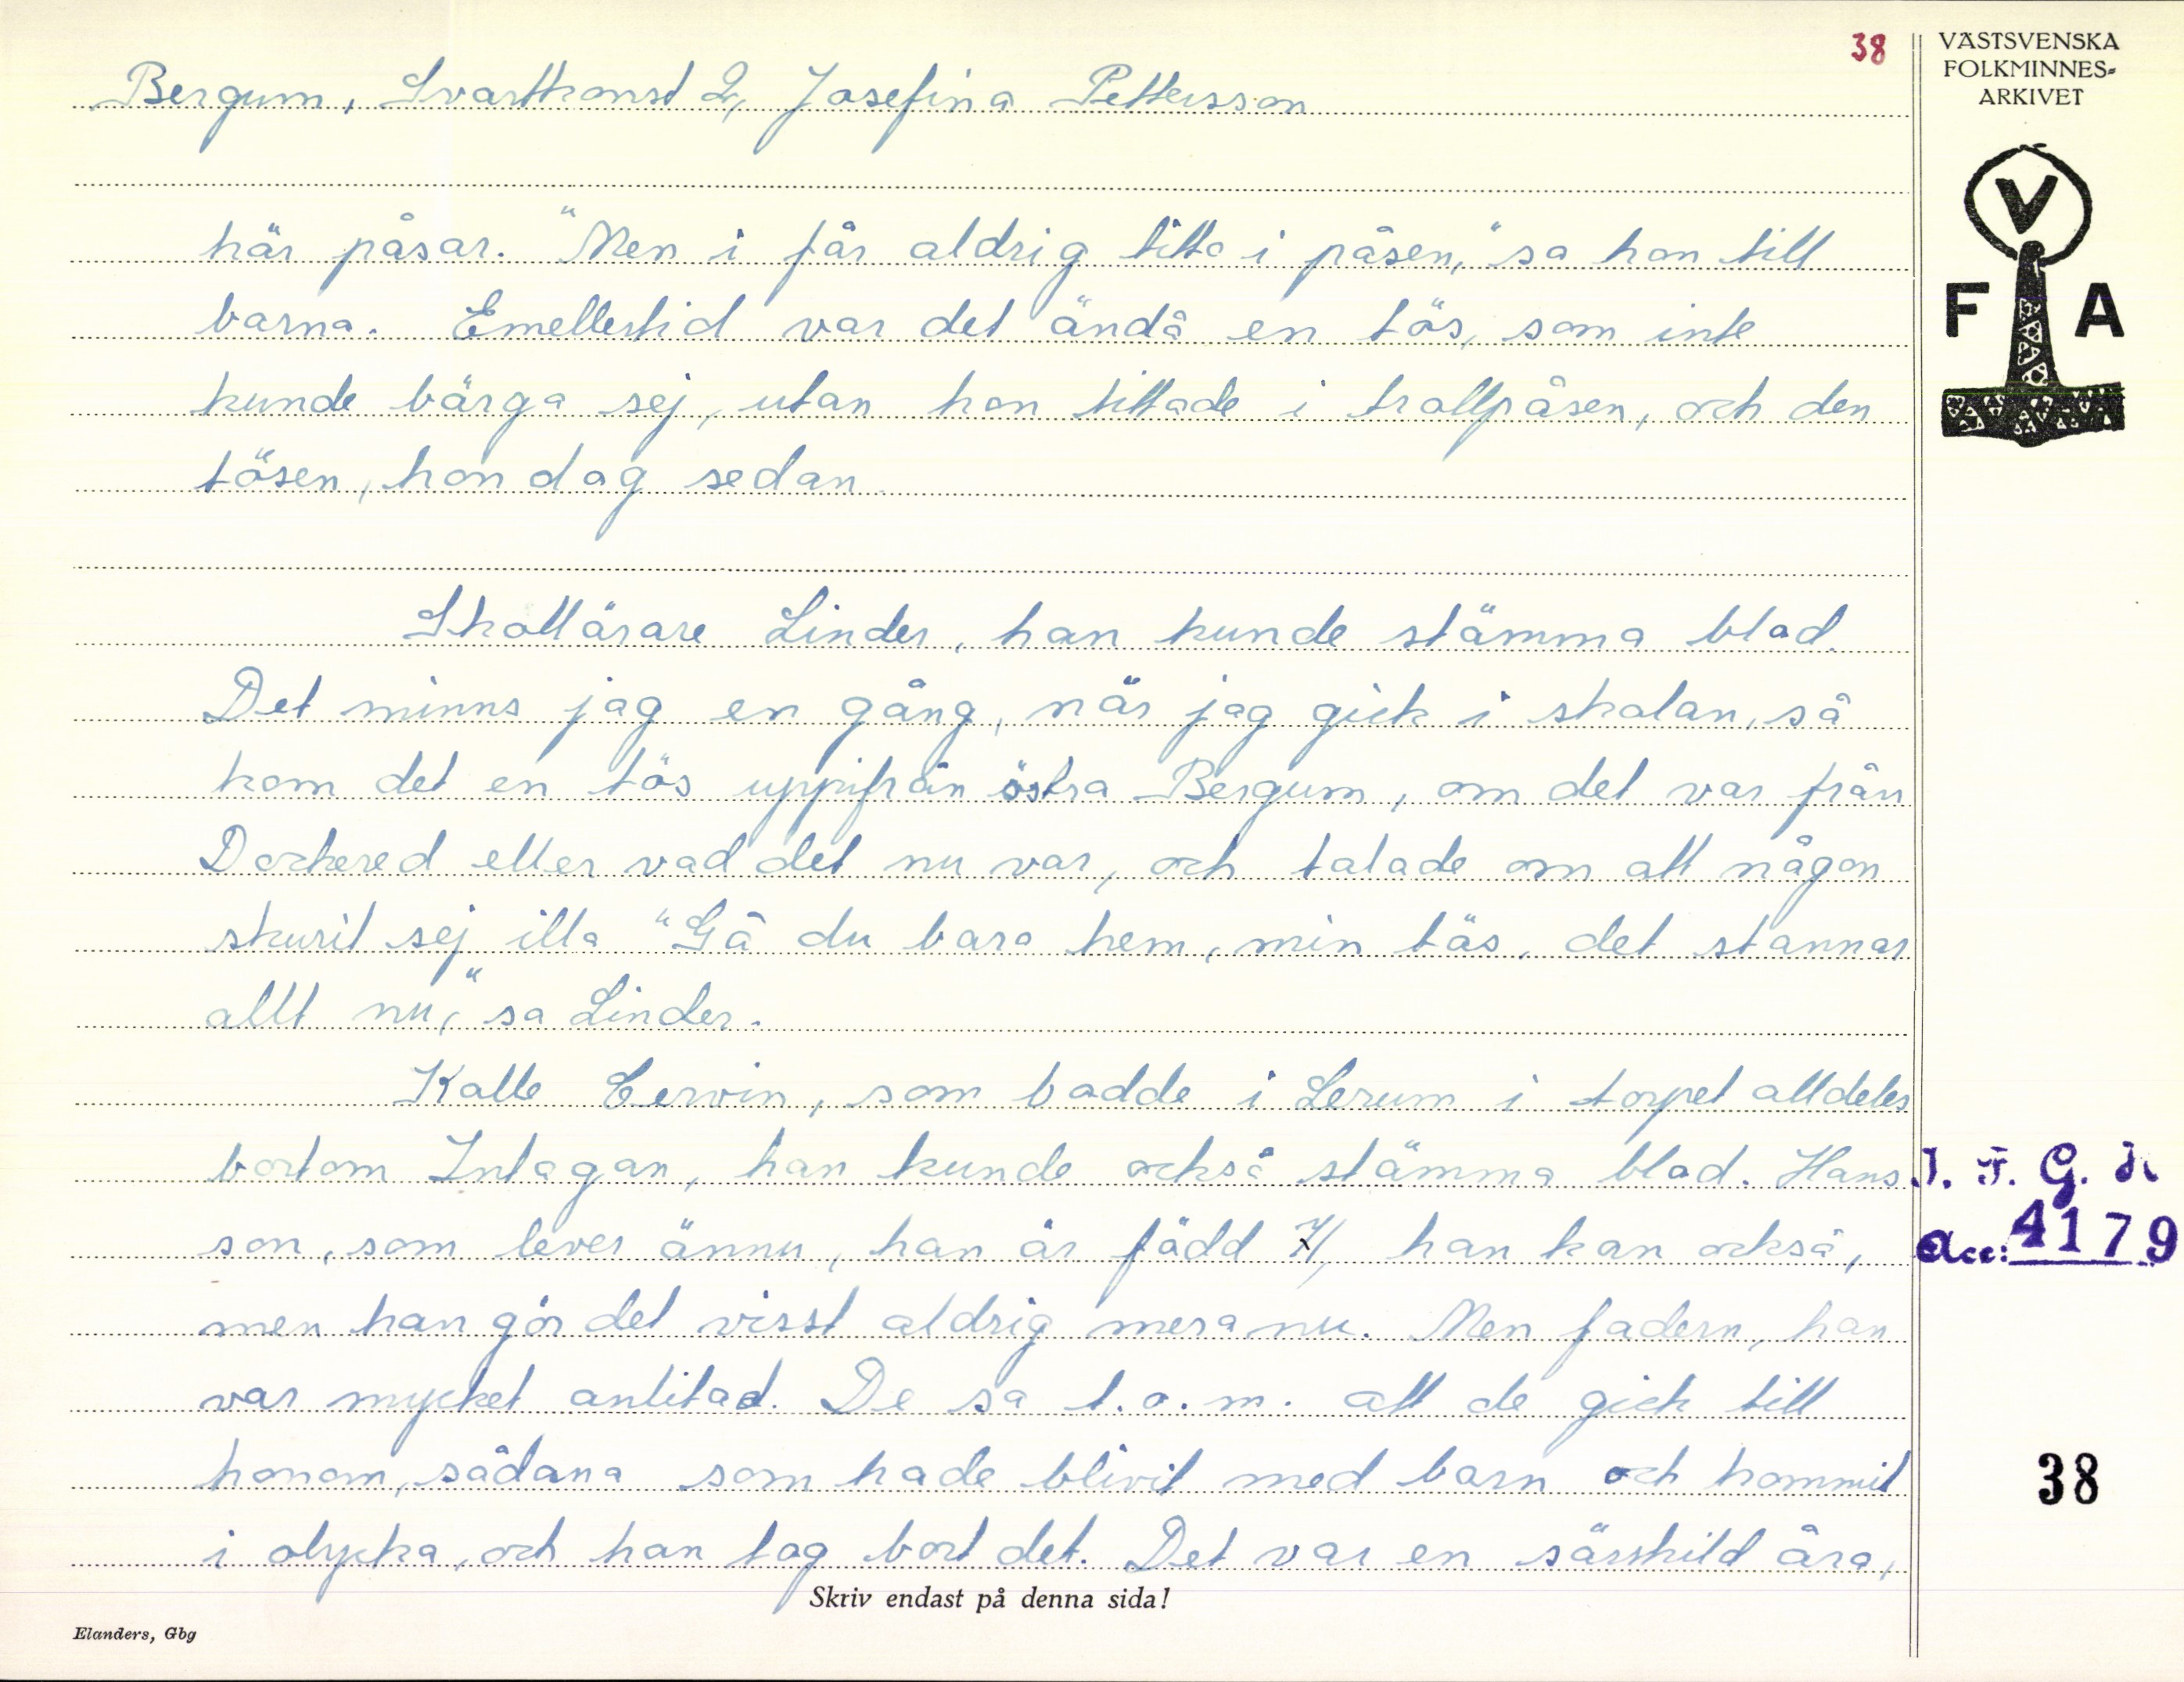 38
VÄSTSVENSKA
FOLKMINNES-
ARKIVET
V
F A
Bergum, Svartkonst 2, Josefina Pettersson
här påsar. "Men i får aldrig titta i påsen," sa hon till
barna. Emellertid var det ändå en tös, som inte
kunde bärga sej, utan hon tittade i trollpåsen, och den
tösen, hon dog sedan.
Skollärare Linder, han kunde stämma blod.
Det minns jag en gång, när jag gick i skolan, så
kom det en tös uppifrån östra Bergum, om det var från
Dockered eller vad det nu var, och talade om att någon
skurit sej illa "Gå du bara hem, min tös, det stannar
allt nu," sa Linder.
Kalle Cervin, som bodde i Lerum i torpet alldeles
bortom Intagan, han kunde också stämma blod. Hans
son, som lever ännu, han är född 71, han kan också,
men han gör det visst aldrig mera nu. Men fadern, han
var mycket anlitad. De sa t.o.m. att de gick till
honom, sådana som hade blivit med barn och kommit
i olycka, och han tog bort det. Det var en särskild ära,
I. F. G. H
Acc: 4179
38
Skriv endast på denna sida!
Elanders, Gbg